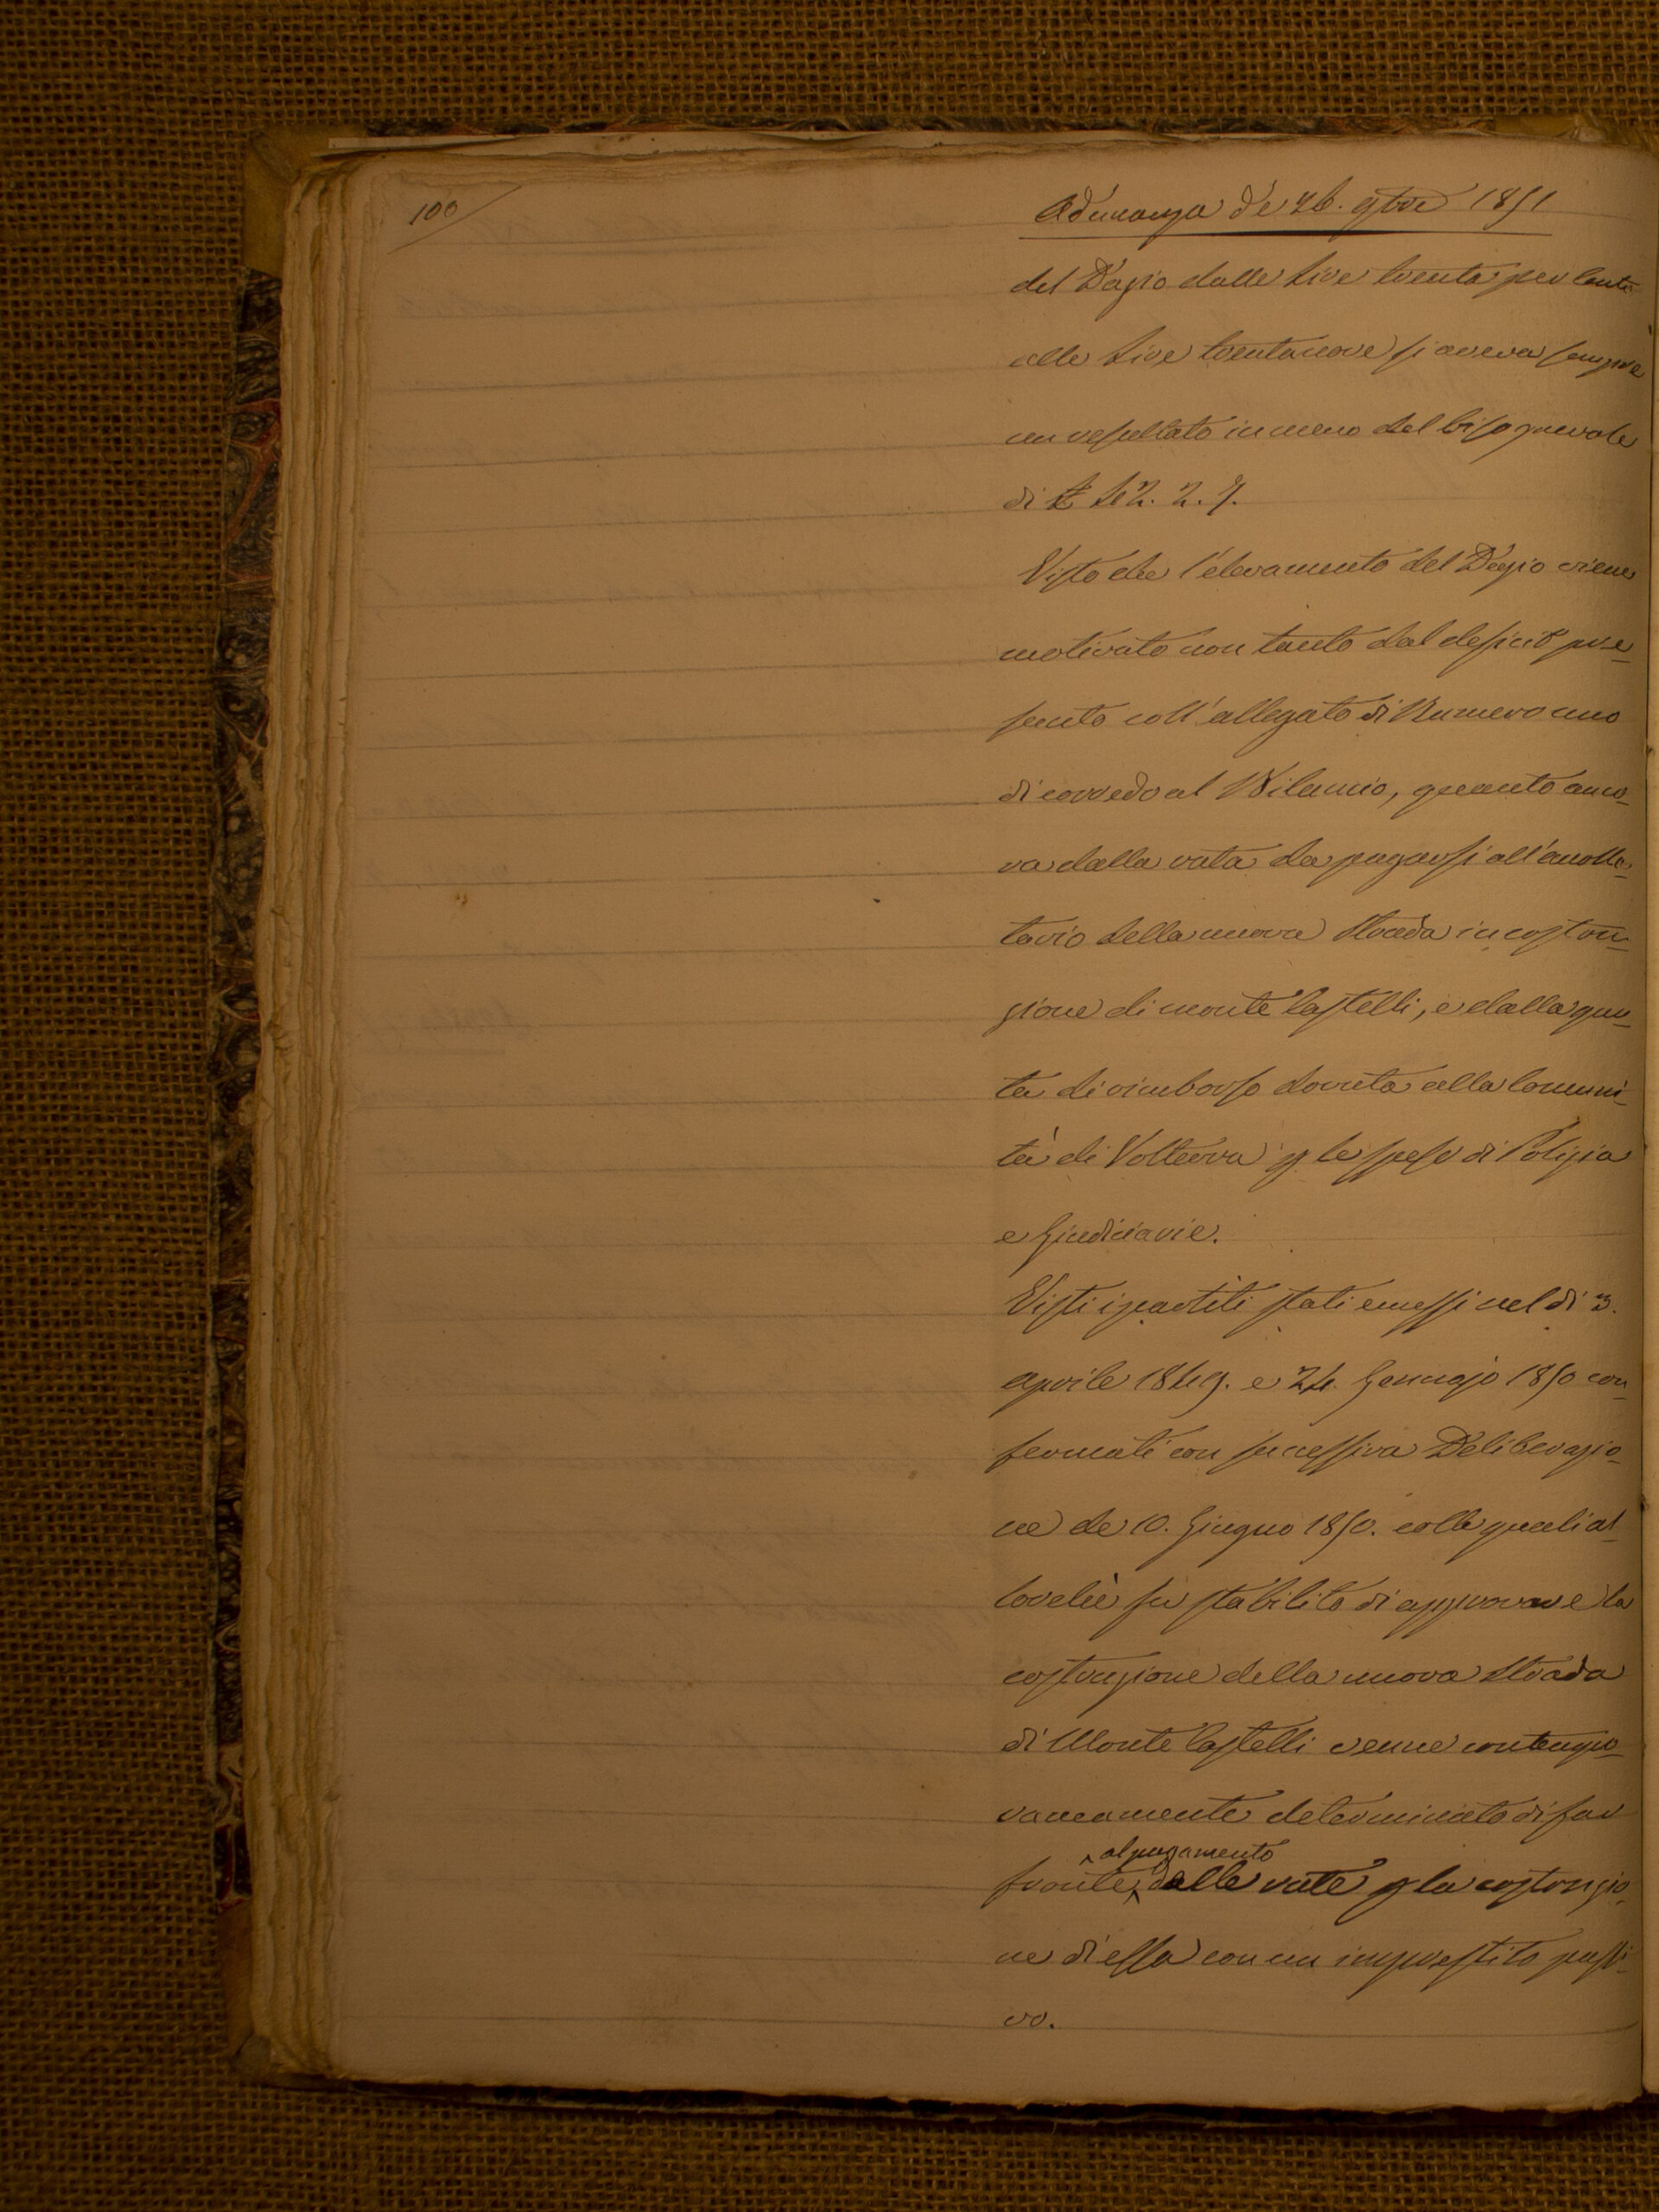 100
Adunanza de 26. 9bre 1851
del Dazio dalle Lire trenta per Cento
alle Lire trentanove si aveva sempre
un resultato in meno del bisognevole
di £ 2. 2. 7.
Visto che l'elevamento del Dazio viene
motivato non tanto dal deficit pre-
sento coll'allegato di Numero uno
di corredo al Bilancio, quanto anco-
ra dalla rata da pagarsi all'accolla-
tario della nuova Strada in costru-
zione di monte Castelli, e dalla quo-
ta di rimborso dovuta alla Comuni-
tà di Volterra p le spese di Polizia
e Giudiciarie.
Visti i partiti stati emessi nel dì 3.
aprile 1849. e 24. Gennajo 1850 con-
fermati con successiva Deliberazio-
ne de 10. Giugno 1850. colle quali al-
lorchè fu stabilito di approvare la
costruzione della nuova Strada
di Monte Castelli venne contempo-
raneamente determinato di far
al pagamento
fronte, delle rate p la costruzio-
ne di essa con un imprestito passi-
vo.